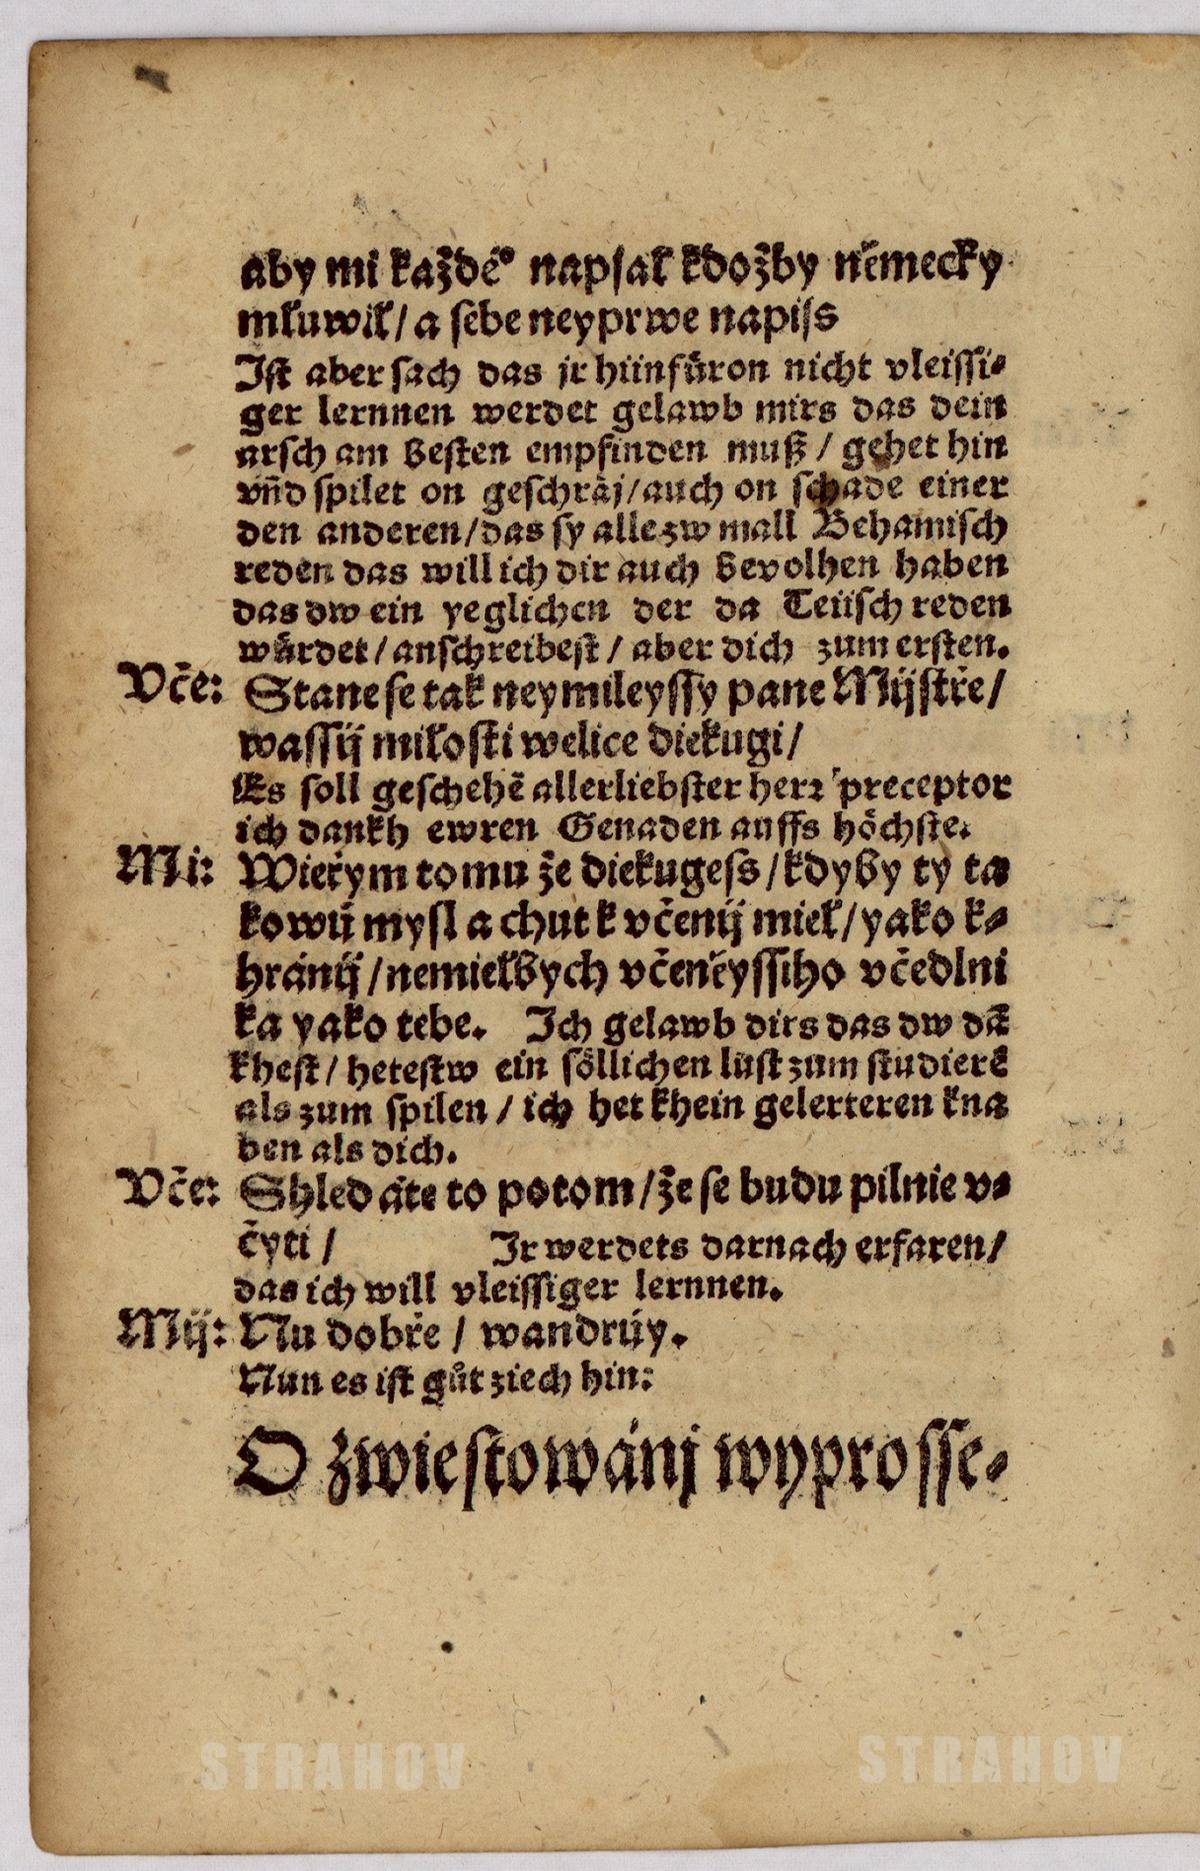 aby mi každé° napsal kdožby německy
mluwil / a sebe neyprwe napiss
Ist aber sach das jr hiinfüron nicht vleissi⸗
ger lernnen werdet gelawb mirs das dein
arsch am besten empfinden muß / gehet hin
vñd spilet on geschräj / auch on schade einer
den anderen / das sy alle zw mall Behamisch
reden das will ich dir auch bevolhen haben
das dw ein yeglichen der da Teütsch reden
würdet / anschreibest / aber dich zum ersten.
Vče: Stane se tak neymileyssy pane Mijstře /
wassij milosti welice diekugi /
Es soll geschehē allerliebster herr preceptor
ich dankh ewren Genaden auffs höchste.
Mi: Wieřym tomu že diekugess / kdyby ty ta
kowú mysl a chut k včenij miel / yako k⸗
hránij / nemielbych včeněyssiho včedlni
ka yako tebe. Ich gelawb dirs das dw dā
khest / hetestw ein söllichen lust zum studierē
als zum spilen / ich het khein gelerteren kna
ben als dich.
Vče: Shledáte to potom / že se budu pilnie v⸗
čyti / Ir werdets darnach erfaren /
das ich will vleissiger lernnen.
Mij: Nu dobře / wandrúy.
Nun es ist gůt ziech hin:
O zwiestowánj wyprosse⸗
STRAHOV STRAHOV